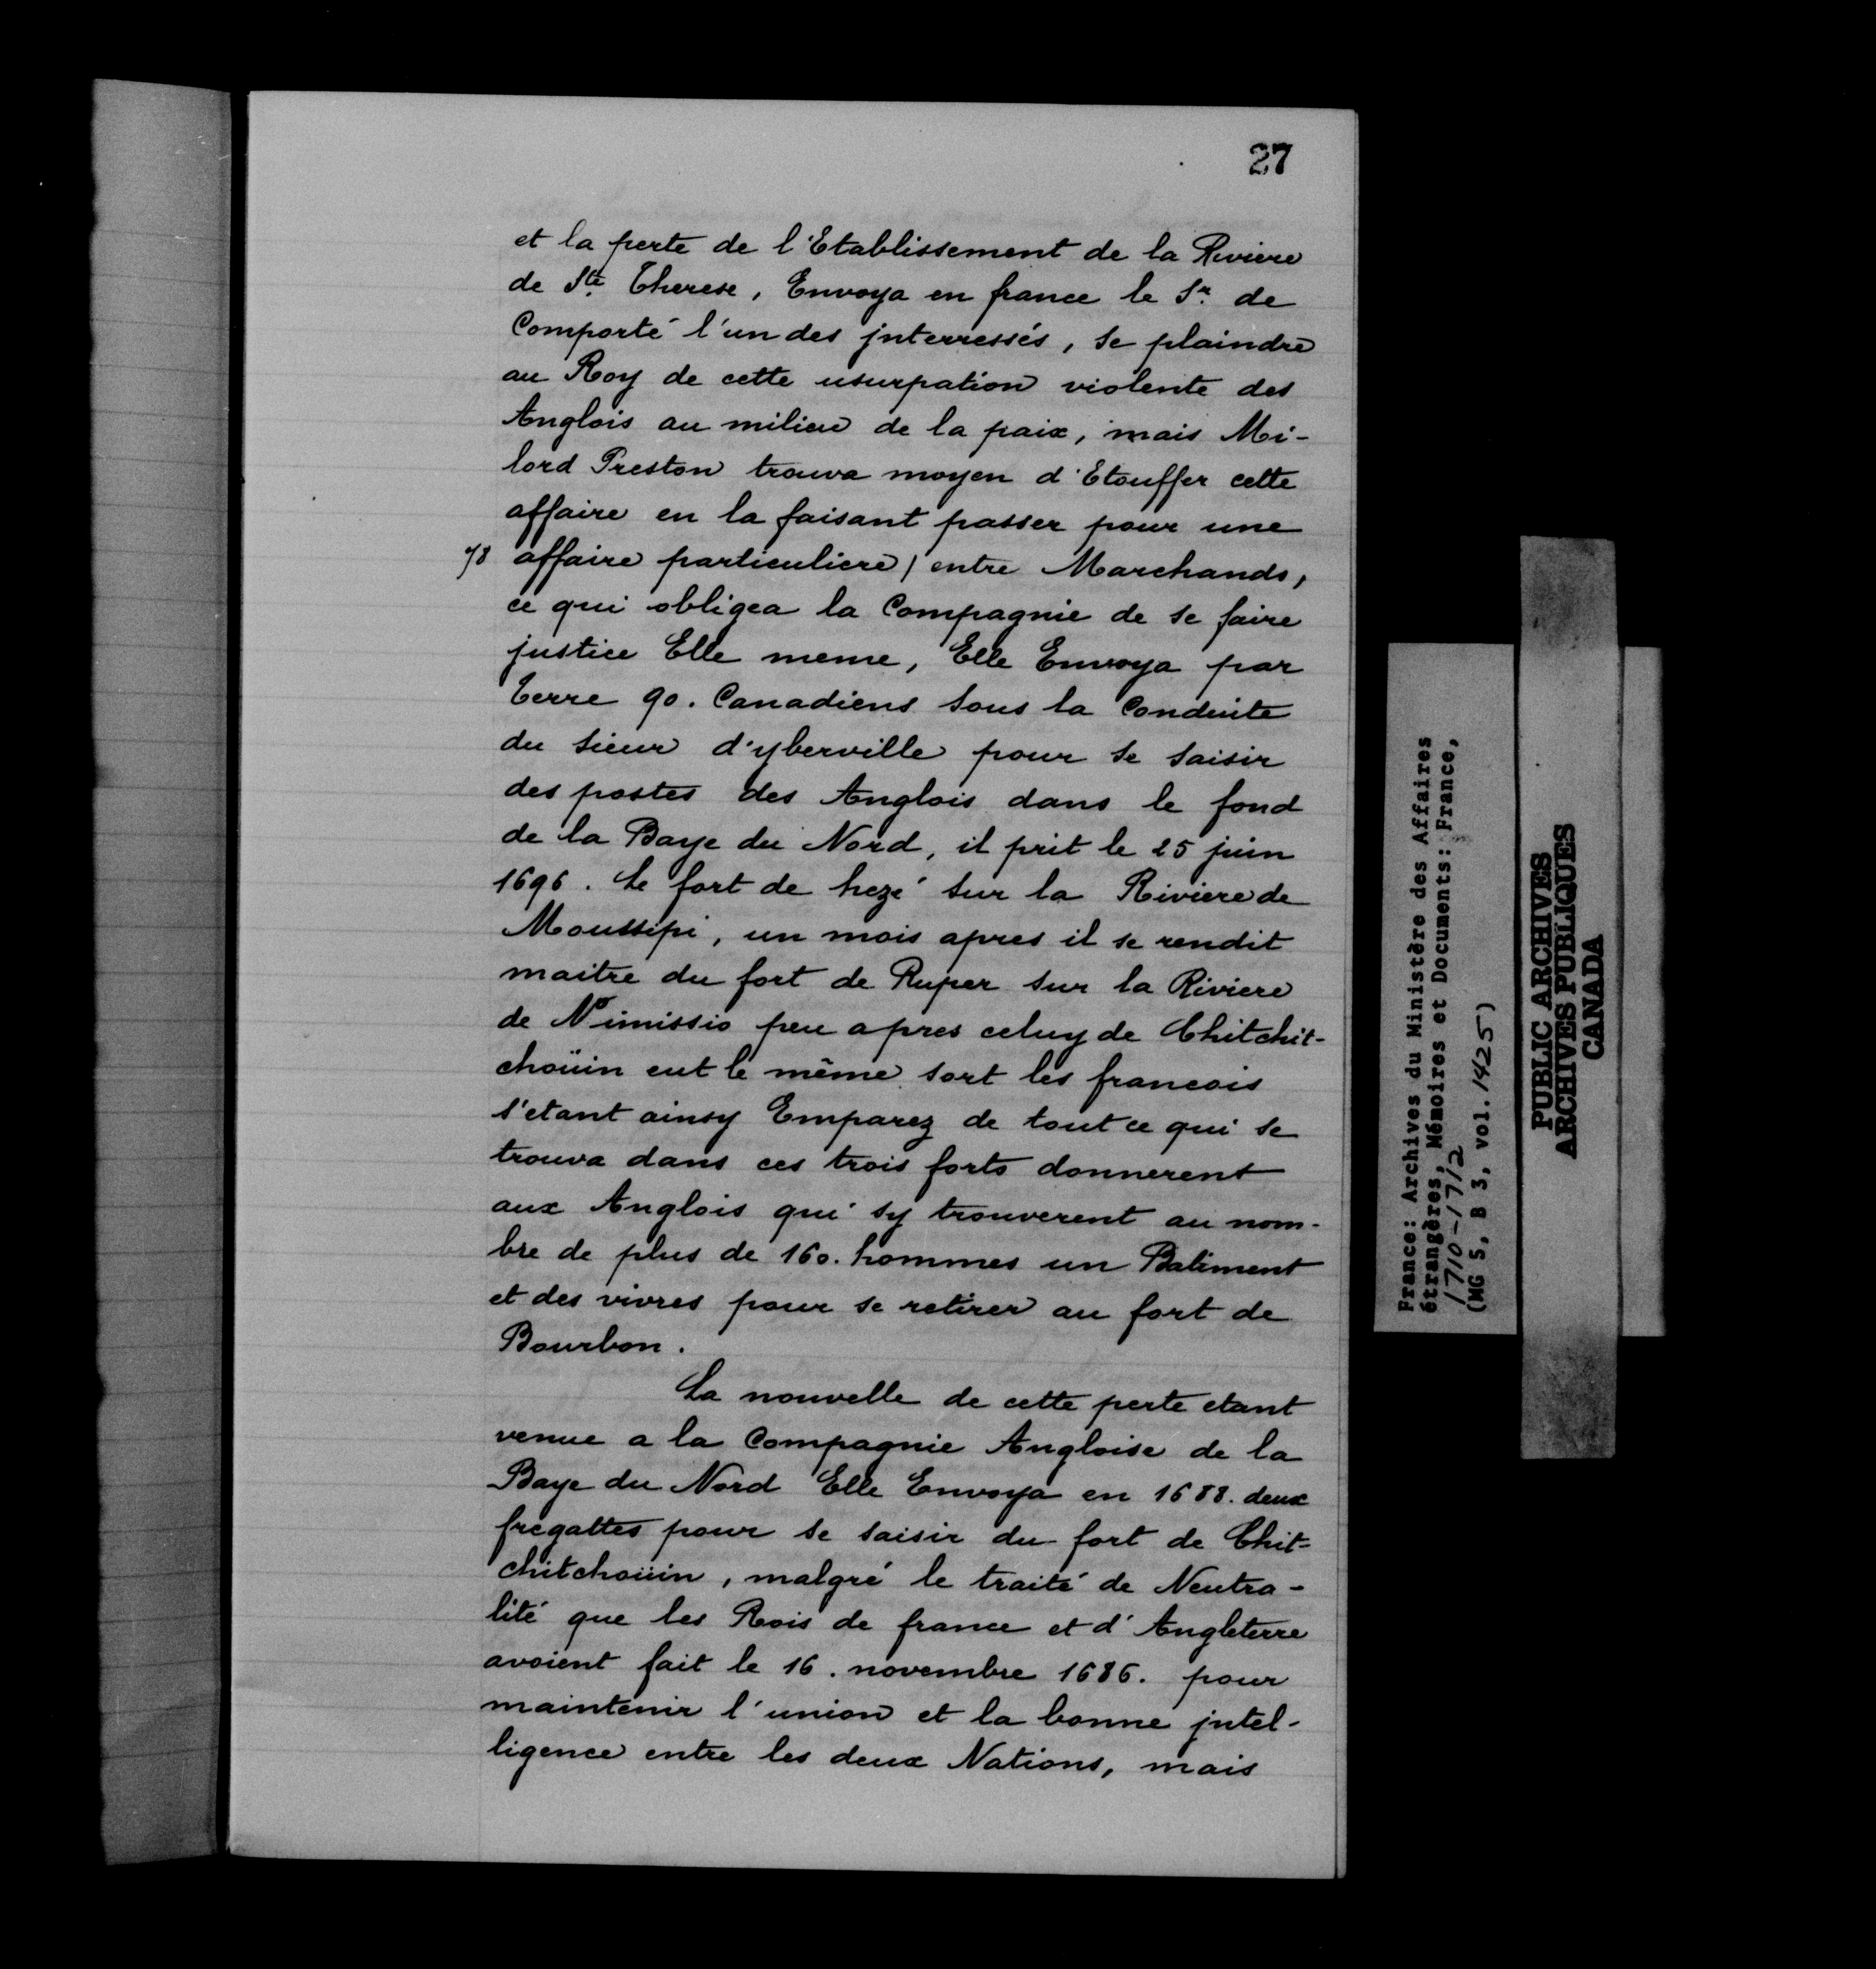 27
et la perte de l'Etablissement de la Riviere
de Ste. Therese, Envoya en france le Sr. de
Comporté l'un des jnterressés, se plaindre
au Roy de cette usurpation violente des
Anglois au milieu de la paix, mais Mi-
lord Preston trouva moyen d'Etouffer cette
affaire en la faisant passer pour une
affaire particuliere / entre Marchands,
ce qui obligea la Compagnie de se faire
justice Elle meme, Elle Envoya par
terre 90. Canadiens sous la Conduite
du sieur d'yberville pour se saisir
des postes des Anglois dans le fond
de la Baye du Nord, il prit le 25 juin
1696. Le fort de hezé sur la Riviere de
Moussipi, un mois apres il se rendit
maitre du fort de Ruper sur la Riviere
de Nimissio peu apres celuy de Chitchit-
choüin eut le même sort les francois
s'etant ainsy Emparez de tout ce qui se
trouva dans ces trois forts donnerent
aux Anglois qui sy trouverent au nom-
bre de plus de 160. hommes un Batiment
et des vivres pour se retirer au fort de
Bourbon.
La nouvelle de cette perte etant
venue a la Compagnie Angloise de la
Baye du Nord Elle Envoya en 1688. deux
fregattes pour se saisir du fort de Chit-
chitchoüin, malgré le traité de Neutra-
lité que les Rois de france et d'Angleterre
avoient fait le 16. novembre 1686. pour
maintenir l'union et la bonne jntel-
ligence entre les deux Nations, mais
France: Archives du Ministère des Affaires
étrangères, Mémoires et Documents: France,
1710-1712
(MG 5, B 3, vol. 1425)
PUBLIC ARCHIVES
ARCHIVES PUBLIQUES
CANADA